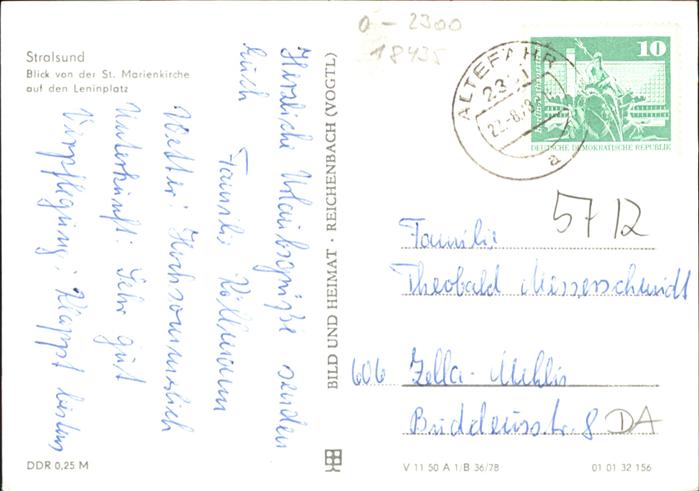 0-2300
18435
Stralsund
Blick von der St. Marienkirche
auf den Leninplatz
Herzliche Urlaubsgrüße senden
Euch
Familie
Wetter: Hochsommerlich
Unterkunft: Sehr gut
Verpflegung: Klappt bestens
DDR 0,25 M
BILD UND HEIMAT · REICHENBACH (VOGTL)
ALTEFÄHR
a
10
DEUTSCHE DEMOKRATISCHE REPUBLIK
5712
Familie
Theobald Messerschmidt
606 Zella-Mehlis
8 DA
V 11 50 A 1/B 36/78
01 01 32 156